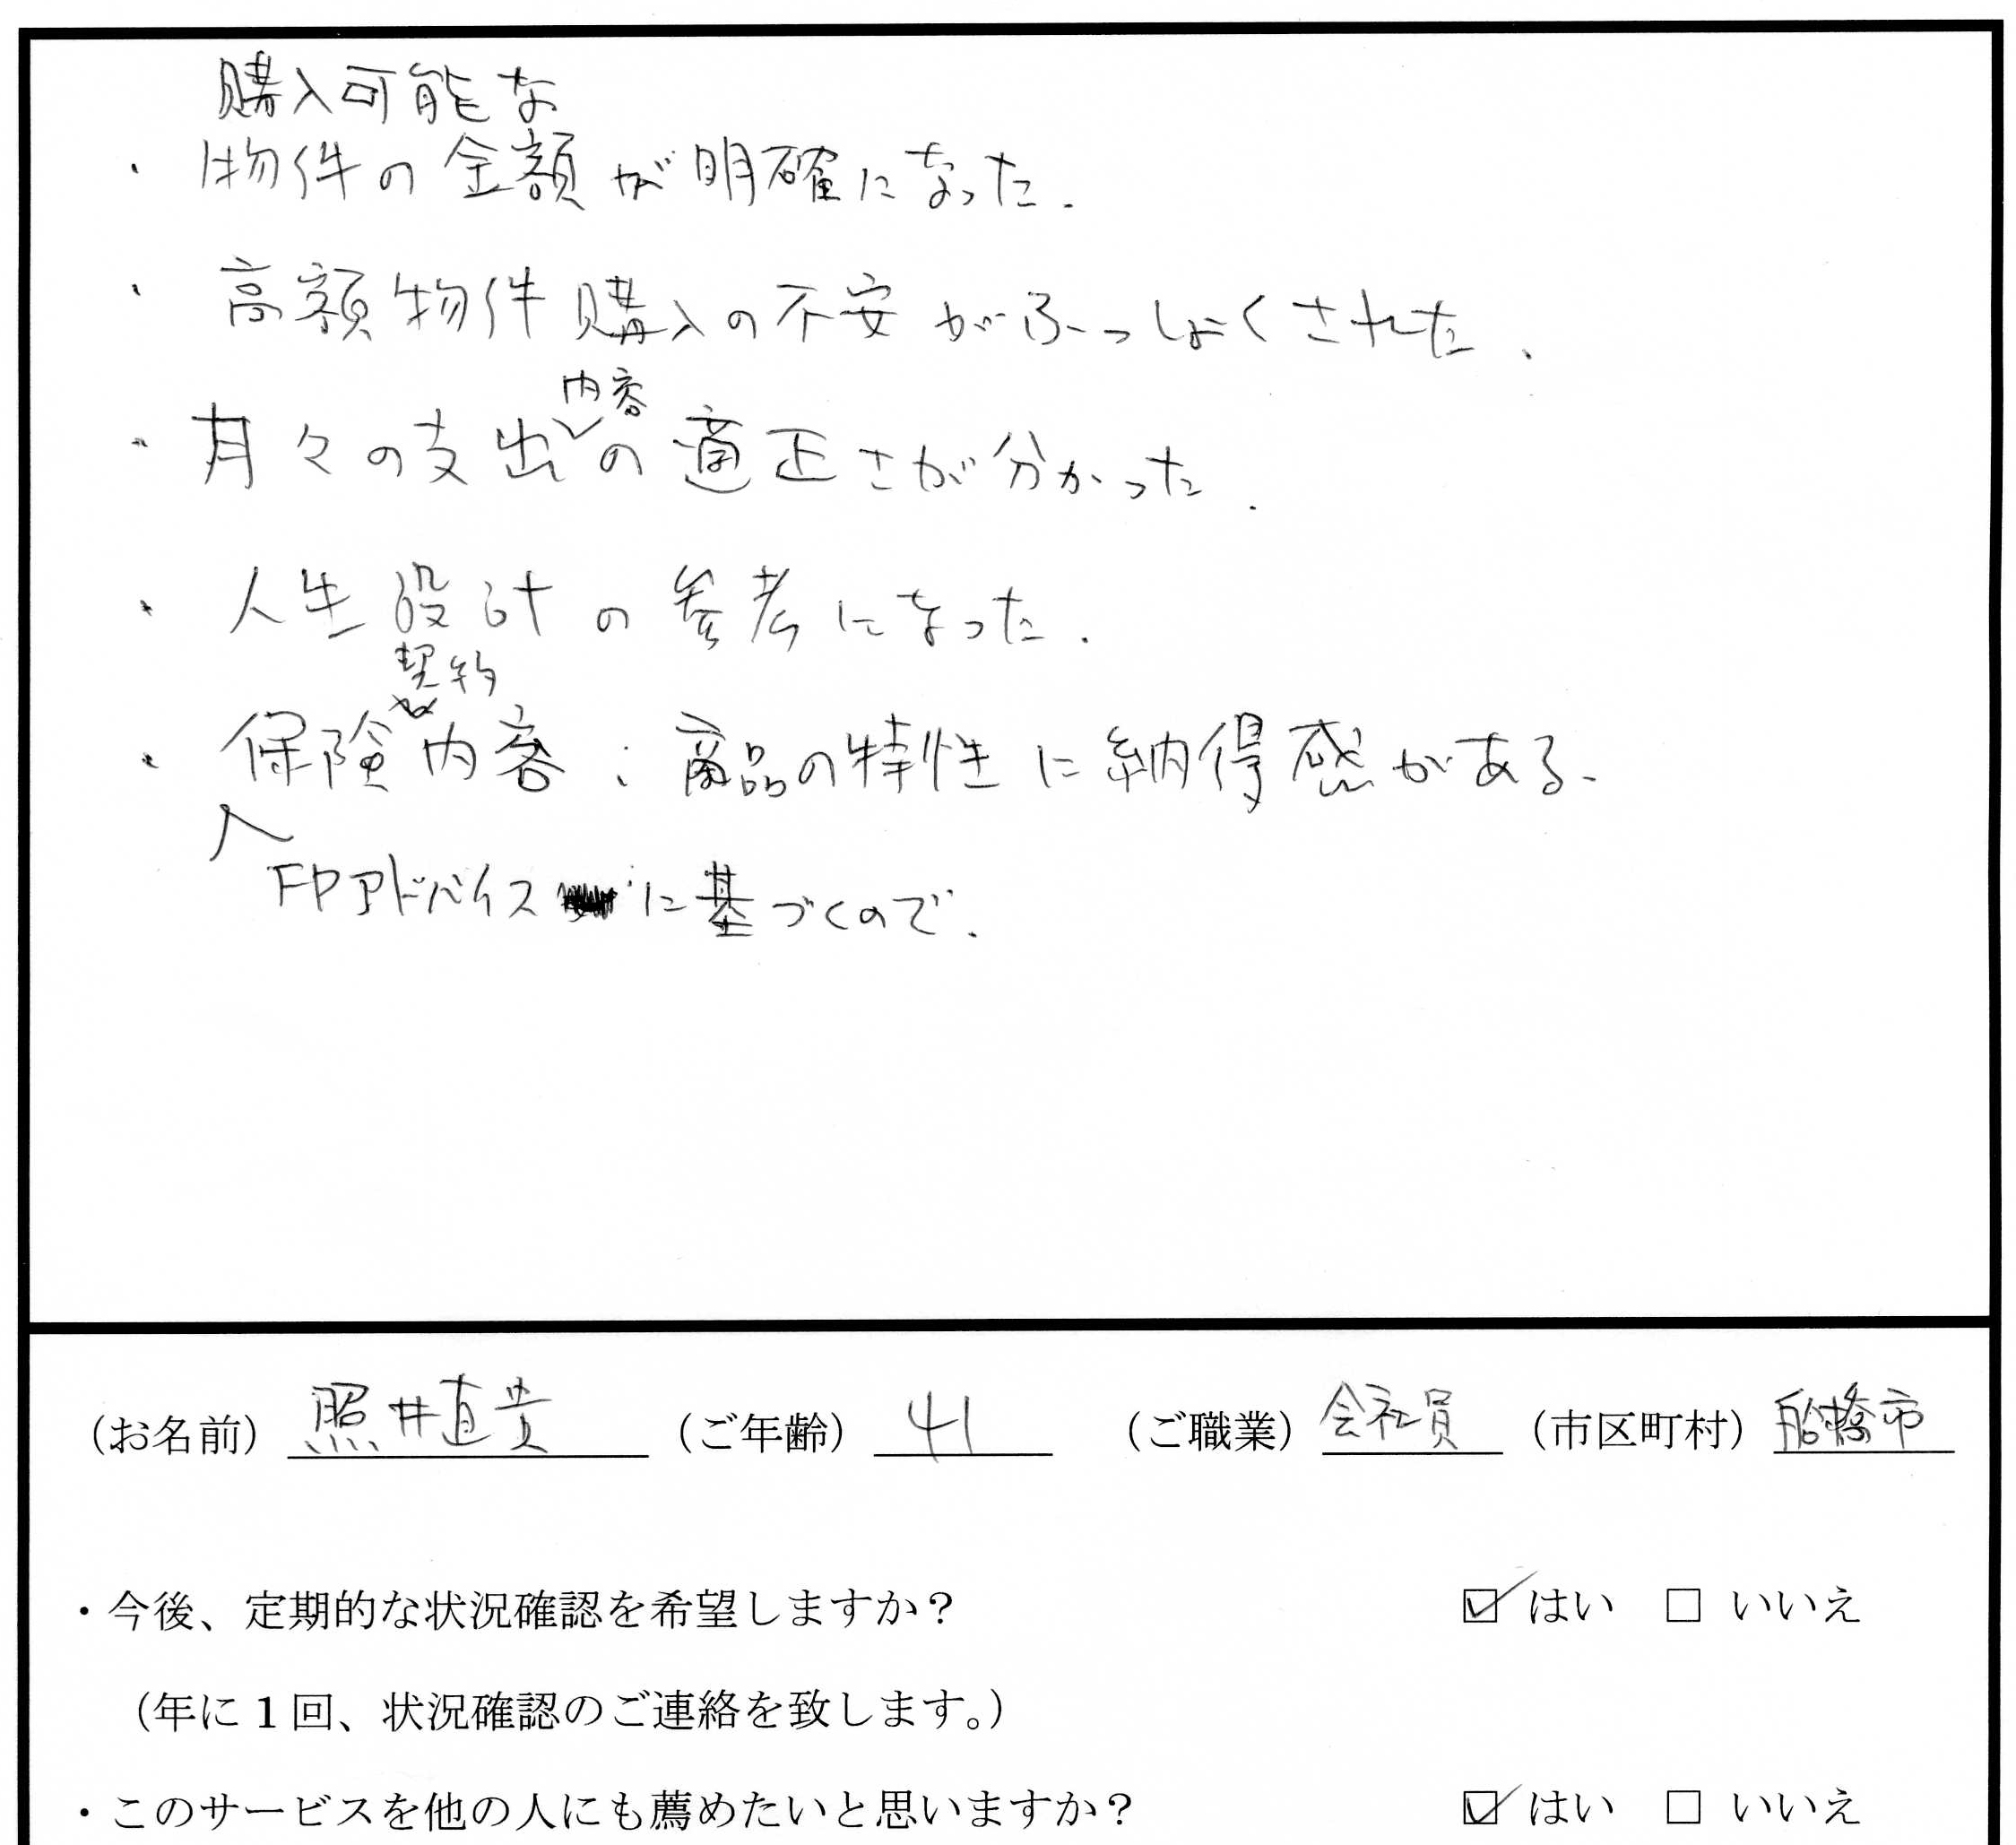 購入可能な
・物件の金額が明確になった.
・高額物件購入の不安がふっしょくされた、
内容
・月々の支出の適正さが分かった.
・人生設計の参考になった.
契約
・保険内容:商品の特性に納得感がある.
FPアドバイスに基づくので.
(お名前) 照井直貴 (ご年齢) 41 (ご職業) 会社員 (市区町村) 船橋市
・今後、定期的な状況確認を希望しますか? ☑ はい □ いいえ
(年に1回、状況確認のご連絡を致します。)
・このサービスを他の人にも薦めたいと思いますか? ☑ はい □ いいえ